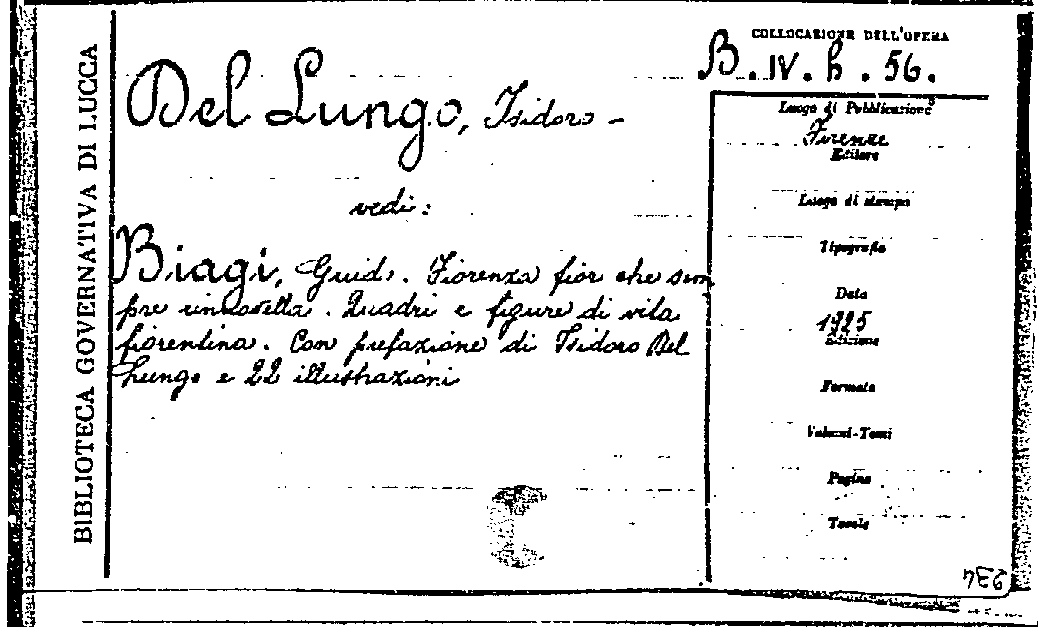 BIBLIOTECA GOVERNATIVA DI LUCCA
COLLOCAZIONE DELL'OPERA
B. IV. h. 56.
Del Lungo, Isidoro -
vedi:
Biagi, Guido. Fiorenza fior che sem
pre rinnovella. Quadri e figure di vita
fiorentina. Con prefazione di Isidoro Del
Lungo e 22 illustrazioni
Luogo di Pubblicazione
Firenze
Editore
Luogo di stampa
Tipografia
Data
1925
Edizione
Formato
Volumi-Tomi
Pagine
Tavole